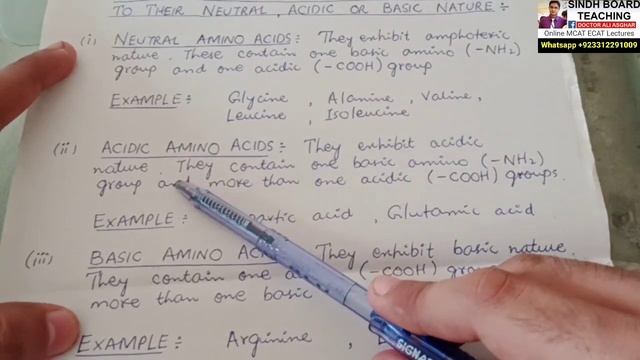 TO THEIR NEUTRAL, ACIDIC OR BASIC NATURE :-
SINDH BOARD
TEACHING
DOCTOR ALI ASGHAR
Online MCAT ECAT Lectures
Whatsapp +923312291009
(i) NEUTRAL AMINO ACIDS :- They exhibit amphoteric
nature. These contain one basic amino (-NH2)
group and one acidic (-COOH) group
EXAMPLE :- Glycine, Alanine, Valine,
Leucine, Isoleucine
(ii) ACIDIC AMINO ACIDS :- They exhibit acidic
nature. They contain one basic amino (-NH2)
group and more than one acidic (-COOH) groups.
EXAMPLE :- partic acid, Glutamic acid
(iii) BASIC AMINO AC They exhibit basic nature.
They contain one a (-COOH) gro
more than one basic
EXAMPLE :- Arginine,
SIGNA